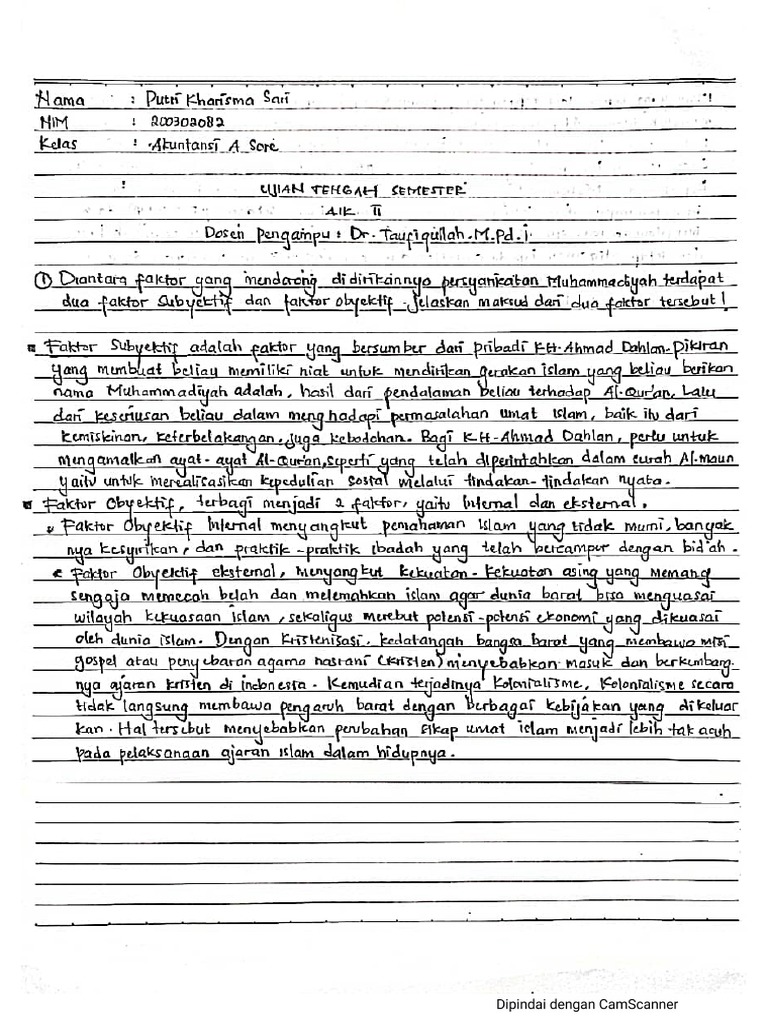 Nama : Putri Kharisma Sari
NIM : 200302082
Kelas : Akuntansi A Sore
UJIAN TENGAH SEMESTER
AIK II
Dosen Pengampu : Dr. Taufiqullah. M.Pd.i.
① Diantara faktor yang mendorong didirikannya persyarikatan Muhammadiyah terdapat
dua faktor Subyektif dan faktor obyektif. Jelaskan maksud dari dua faktor tersebut!
Faktor Subyektif adalah faktor yang bersumber dari pribadi KH. Ahmad Dahlan. Pikiran
yang membuat beliau memiliki niat untuk mendirikan gerakan islam yang beliau berikan
nama Muhammadiyah adalah, hasil dari pendalaman beliau terhadap Al-Qur'an, Lalu
dari keseriusan beliau dalam menghadapi permasalahan umat Islam, baik itu dari
kemiskinan, keterbelakangan, juga kebodohan. Bagi KH. Ahmad Dahlan, perlu untuk
mengamalkan ayat-ayat Al-Qur'an, seperti yang telah diperintahkan dalam surah Al-maun
yaitu untuk merealisasikan kepedulian sosial melalui tindakan-tindakan nyata.
Faktor Obyektif, terbagi menjadi 2 faktor, yaitu Internal dan eksternal.
Faktor Obyektif Internal menyangkut pemahaman islam yang tidak murni, banyak
nya kesyirikan, dan praktik-praktik ibadah yang telah bercampur dengan bid'ah.
Faktor Obyektif eksternal, menyangkut kekuatan-kekuatan asing yang memang
sengaja memecah belah dan melemahkan islam agar dunia barat bisa menguasai
wilayah kekuasaan islam, sekaligus merebut potensi-potensi ekonomi yang dikuasai
oleh dunia islam. Dengan Kristenisasi, kedatangan bangsa barat yang membawa misi
gospel atau penyebaran agama nasrani (kristen) menyebabkan masuk dan berkembang-
nya ajaran kristen di indonesia. Kemudian terjadinya Kolonialisme, Kolonialisme secara
tidak langsung membawa pengaruh barat dengan berbagai kebijakan yang dikeluar
kan. Hal tersebut menyebabkan perubahan sikap umat islam menjadi lebih tak acuh
pada pelaksanaan ajaran islam dalam hidupnya.
Dipindai dengan CamScanner